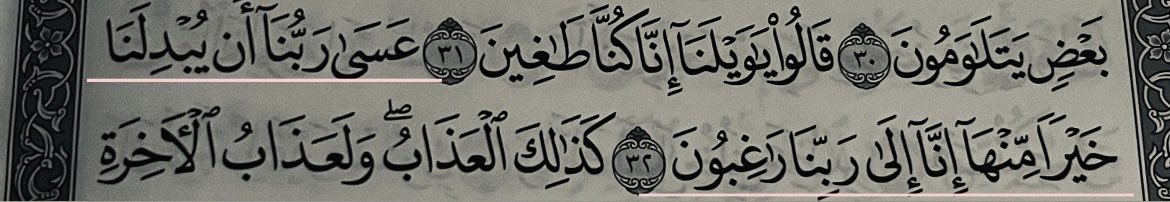 بَعْضٍ يَتَلَٰوَمُونَ ٣٠ قَالُوا۟ يَٰوَيْلَنَآ إِنَّا كُنَّا طَٰغِينَ ٣١ عَسَىٰ رَبُّنَآ أَن يُبْدِلَنَا
خَيْرًا مِّنْهَآ إِنَّآ إِلَىٰ رَبِّنَا رَٰغِبُونَ ٣٢ كَذَٰلِكَ ٱلْعَذَابُ ۖ وَلَعَذَابُ ٱلْـَٔاخِرَةِ